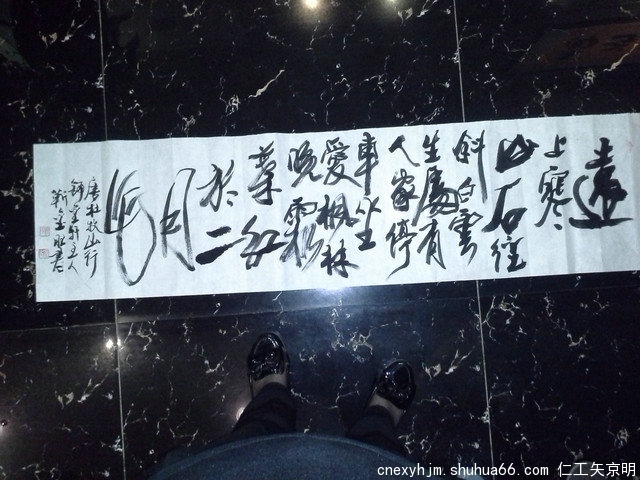 遠
上寒
山石径
斜白雲
生處有
人家停
車坐
愛楓林
晚霜
葉紅
於二
月
花
唐杜牧山行
cnexyhjm.shuhua66.com 仁工矢京明